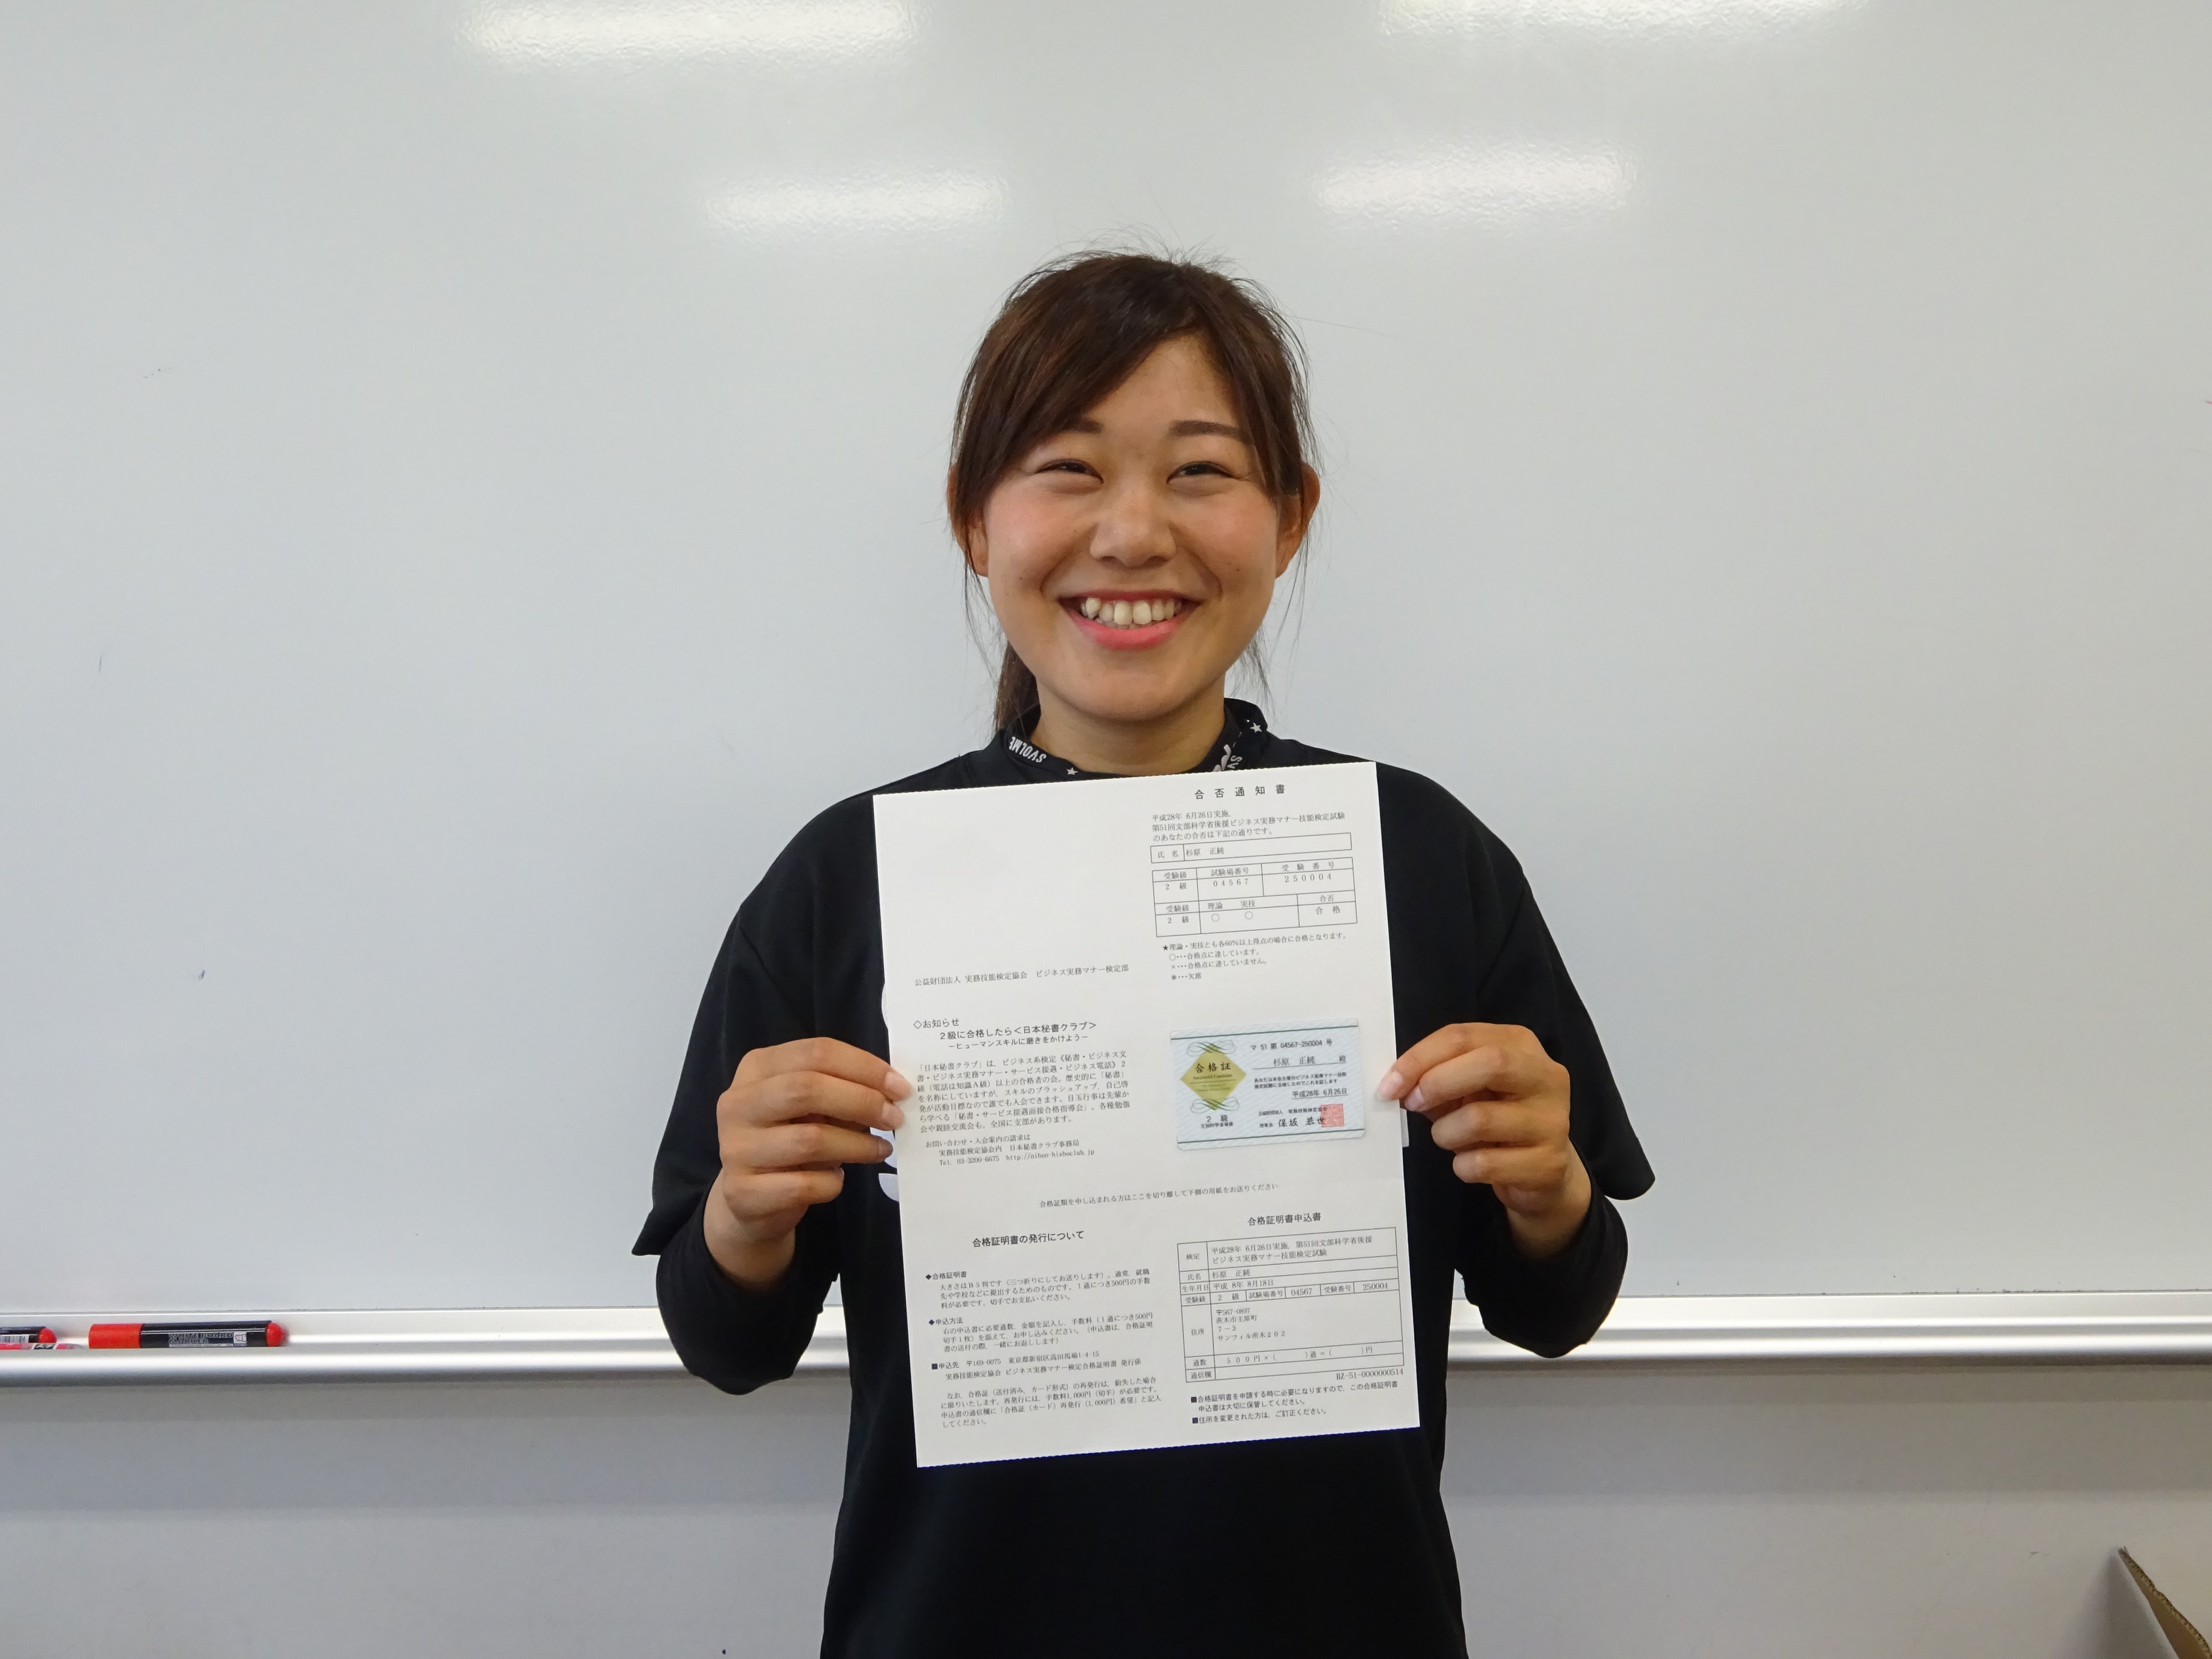 SVOLME
合否通知書
平成28年 6月26日実施、
第51回文部科学省後援ビジネス実務マナー技能検定試験
のあなたの合否は下記の通りです。
氏 名 杉原 正純
受験級 試験場番号 受 験 番 号
2 級 04567 250004
受験級 理論 実技 合否
2 級 ○ ○ 合 格
★理論・実技とも各60%以上得点の場合に合格となります。
○・・・合格点に達しています。
×・・・合格点に達していません。
※・・・欠席
公益財団法人 実務技能検定協会 ビジネス実務マナー検定部
◇お知らせ
2級に合格したら<日本秘書クラブ>
－ヒューマンスキルに磨きをかけよう－
「日本秘書クラブ」は、ビジネス系検定《秘書・ビジネス文
書・ビジネス実務マナー・サービス接遇・ビジネス電話》2
級（電話は知識A級）以上の合格者の会。歴史的に「秘書」
を名称にしていますが、スキルのブラッシュアップ、自己啓
発が活動目標なので誰でも入会できます。目玉行事は先輩か
ら学べる「秘書・サービス接遇面接合格指導会」。各種勉強
会や親睦交流会も。全国に支部があります。
お問い合わせ・入会案内の請求は
実務技能検定協会内 日本秘書クラブ事務局
Tel. 03-3200-6675 http://nihon-hishoclub.jp
マ 51 第 04567-250004 号
杉原 正純 殿
合格証
平成28年 6月26日
2 級
文部科学省後援
理事長 保坂 恭世
合格証類を申し込まれる方はここを切り離して下側の用紙をお送りください
合格証明書の発行について
◆合格証明書
大きさはB5判です（三つ折りにしてお送りします）。通常、就職
先や学校などに提出するためのものです。1通につき500円の手数
料が必要です。切手でお支払いください。
◆申込方法
右の申込書に必要通数、金額を記入し、手数料（1通につき500円
切手1枚）を添えて、お申し込みください。（申込書は、合格証明
書の送付の際、一緒にお返しします）
■申込先 〒169-0075 東京都新宿区高田馬場1-4-15
実務技能検定協会 ビジネス実務マナー検定合格証明書 発行係
なお、合格証（送付済み、カード形式）の再発行は、紛失した場合
に限りいたします。再発行には、手数料1,000円（切手）が必要です。
申込書の通信欄に「合格証（カード）再発行（1,000円）希望」と記入
してください。
合格証明書申込書
検定 平成28年 6月26日実施、第51回文部科学省後援
ビジネス実務マナー技能検定試験
氏名 杉原 正純
生年月日 平成 8年 8月18日
受験級 2 級 試験場番号 04567 受験番号 250004
住所 〒567-0897
茨木市主原町
7－3
サンフィル茨木202
通数 500円×（ ）通＝（ ）円
通信欄
BZ-51-0000000514
■合格証明書を申請する時に必要になりますので、この合格証明書
申込書は大切に保管してください。
■住所を変更された方は、ご訂正ください。